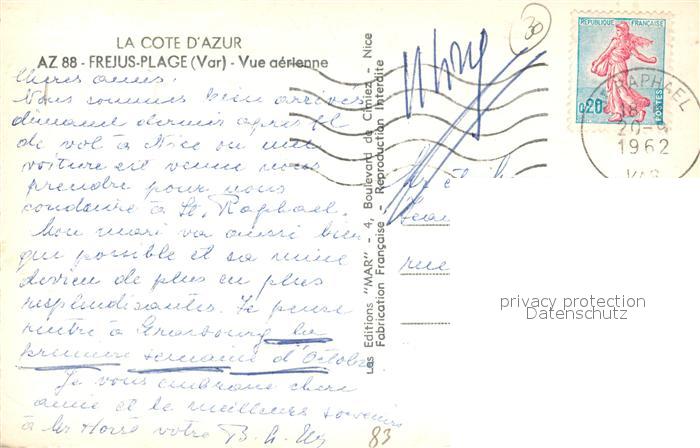 LA COTE D'AZUR
AZ 88 - FREJUS-PLAGE (Var) - Vue aérienne
Chers amis.
Nous sommes bien arrivés
dimanche dernier après
de vol à Nice ou une
voiture est venue nous
prendre pour nous
conduire à St. Raphael.
Mon mari va aussi bien
que possible et sa mine
devien de plus en plus
resplendissantes. Je pense
rentre à Strasbourg la
première semaine d'Octobre
Je vous embrasse chere
amie et le meilleurs souvenirs
à votre
83
Les Editions "MAR" - 4, Boulevard de Cimiez - Nice
Fabrication Française - Reproduction Interdite
30
REPUBLIQUE FRANÇAISE
0,20
POSTES
ST RAPHAEL
18
20-9
1962
VAR
rue
privacy protection
Datenschutz